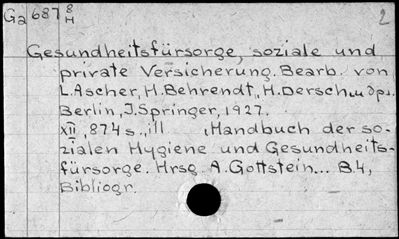 Ga 687 8/H 2
Gesundheitsfürsorge, soziale und
private Versicherung. Bearb. von
L. Ascher, H. Behrendt, H. Dersch
Berlin, J. Springer, 1927.
XII, 874 s., ill (Handbuch der so-
zialen Hygiene und Gesundheits-
fürsorge. Hrsg. A. Gottstein... B.4,
Bibliogr.